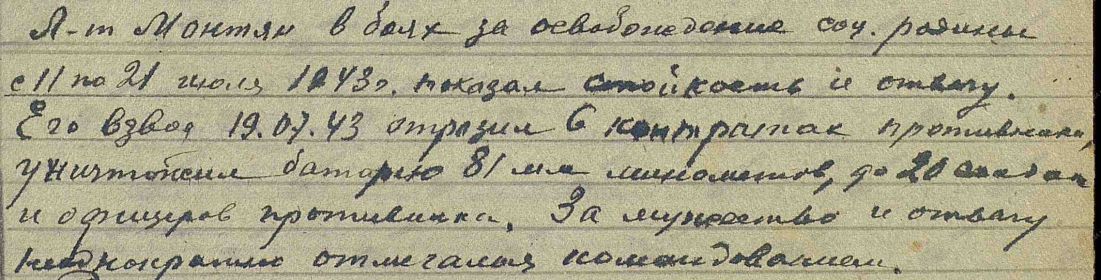 Л-т Монтян в боях за освобождение соц. родины
с 11 по 21 июля 1943г. показал стойкость и отвагу.
Его взвод 19.07.43 отразил 6 контратак противника,
уничтожил батарею 81 мм минометов, до 20 солдат
и офицеров противника. За мужество и отвагу
неоднократно отмечался командованием.